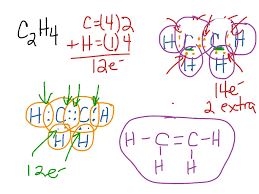 C₂H₄
C=(4)2
+ H=(1)4
12e⁻
H:C:C:H
H H
14e⁻
2 extra
H:C::C:H
H H
12e⁻
H-C=C-H
H H